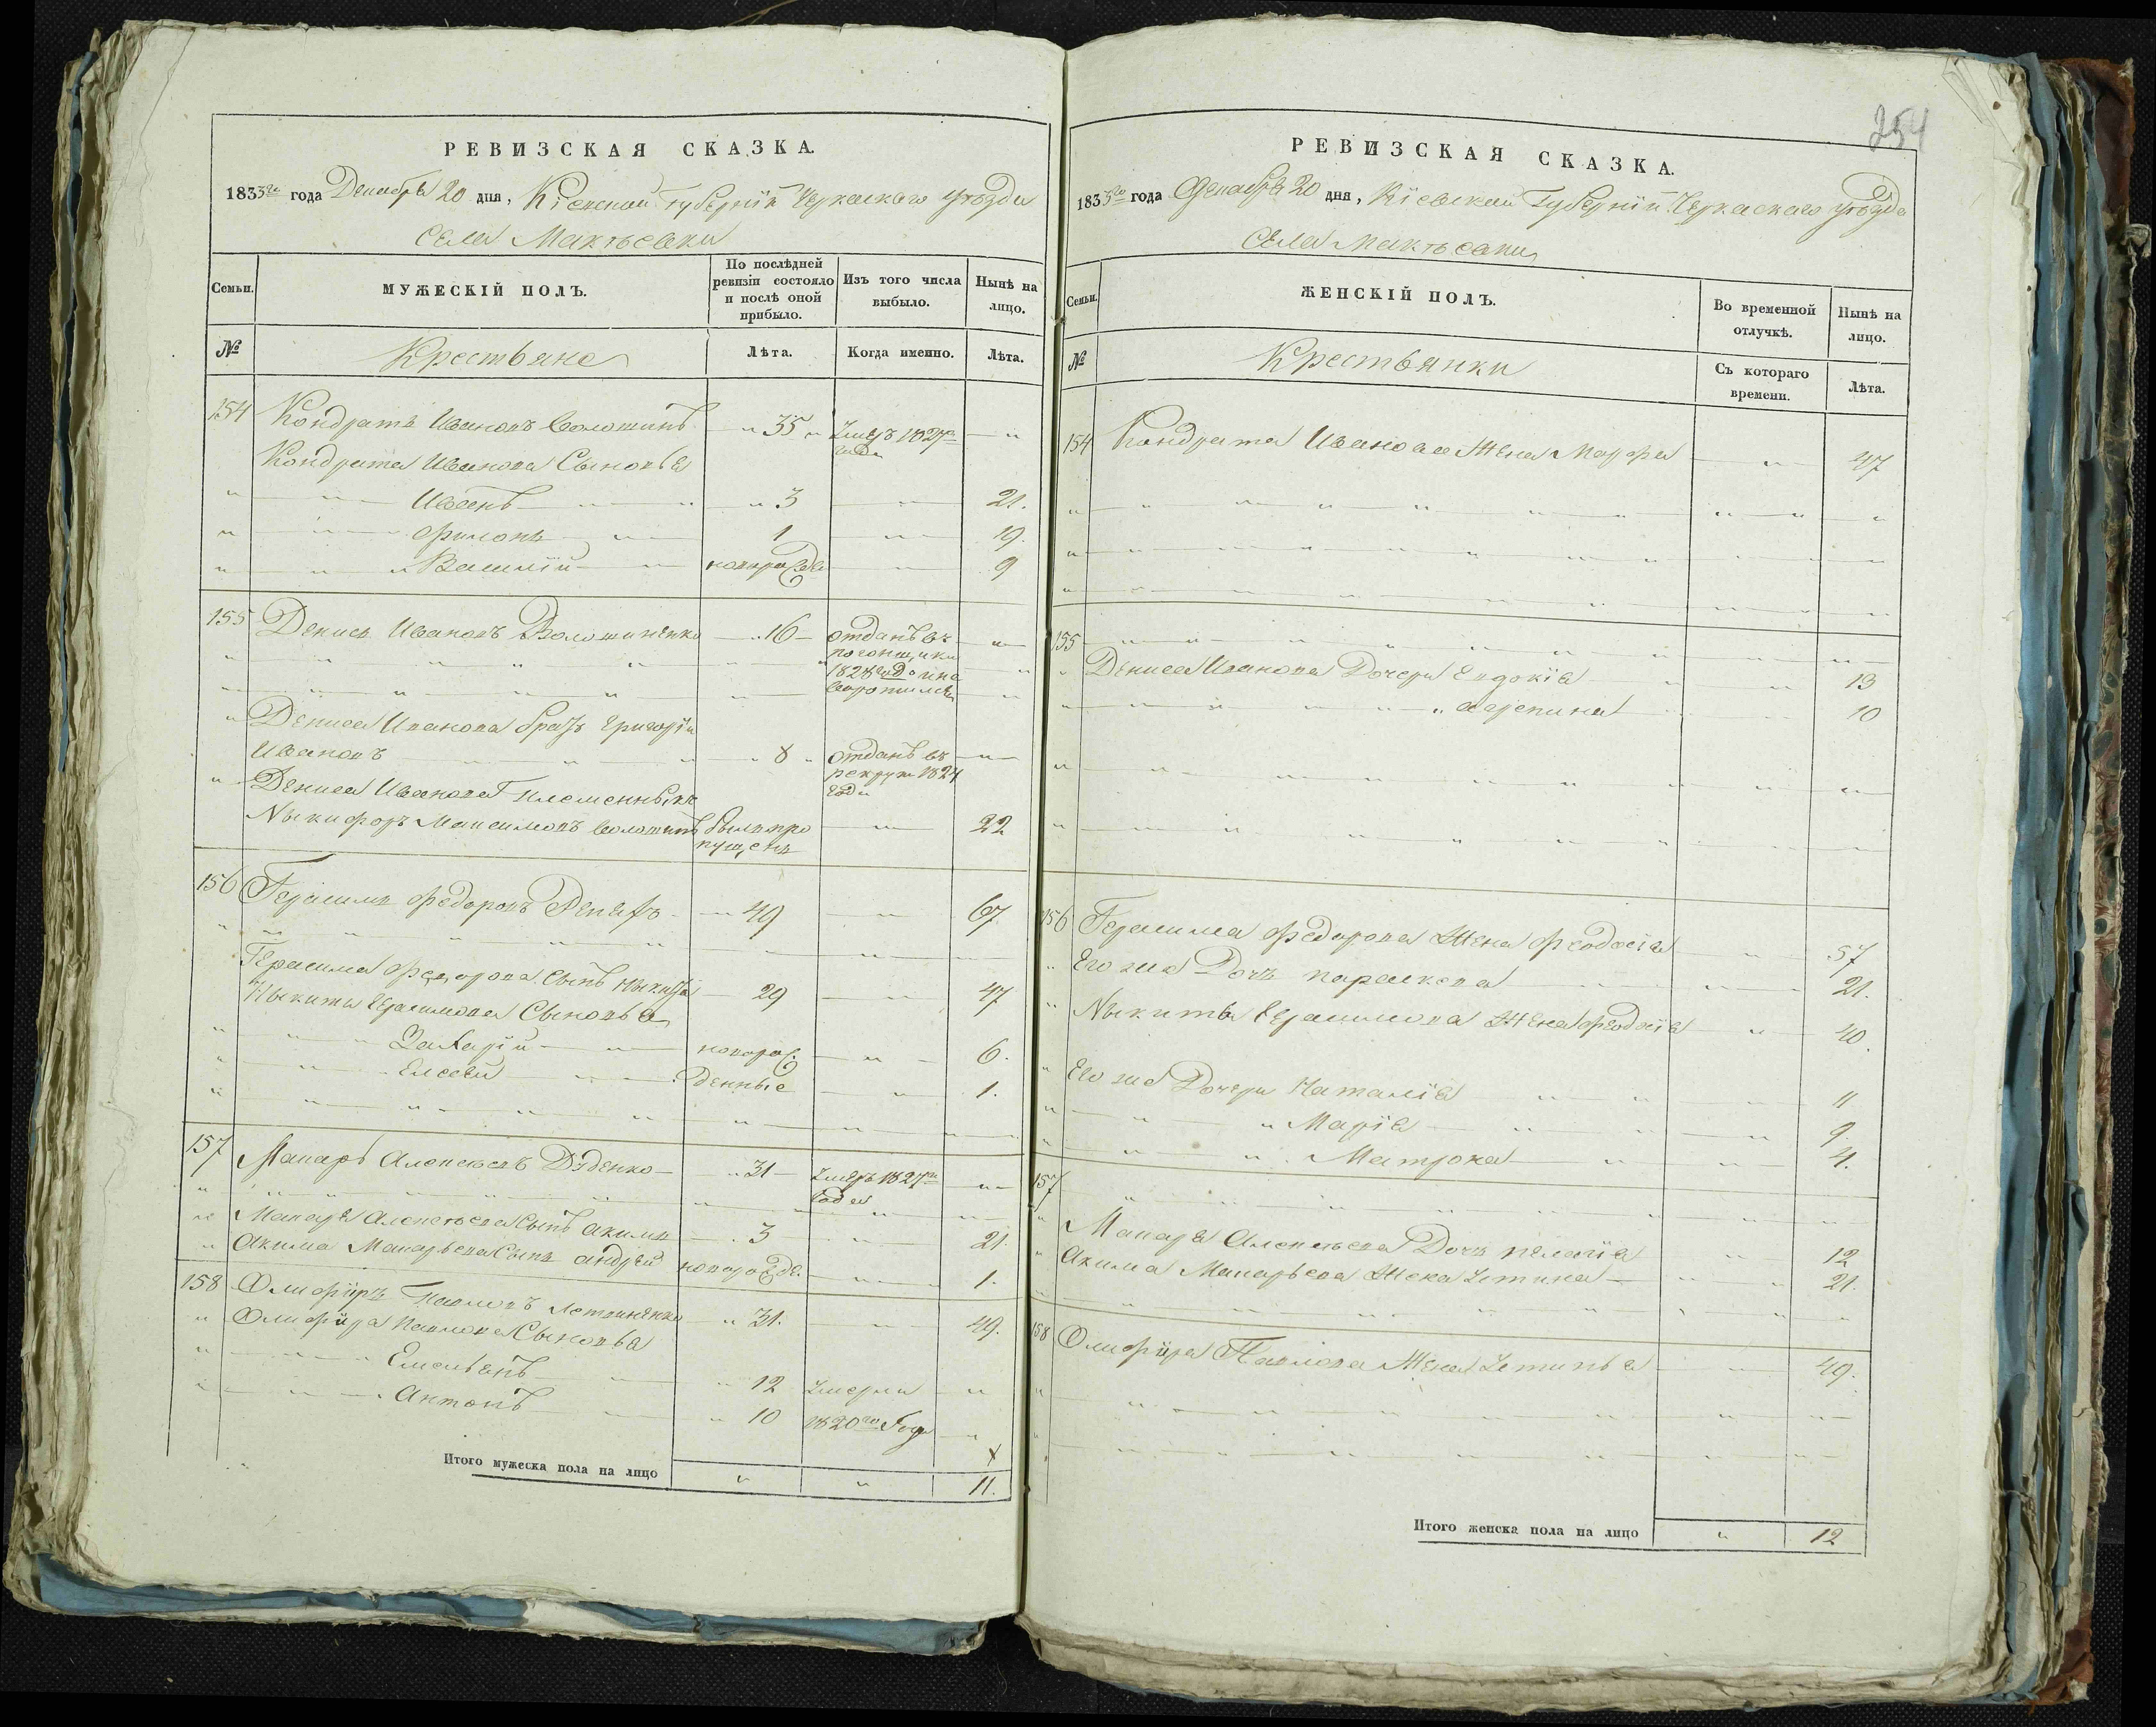 РЕВИЗСКАЯ СКАЗКА.
1835го года Декабря 20 дня, Кіевской Губерніи Черкаскаго уѣзда
Села Макѣевки
Семьи.
МУЖЕСКІЙ ПОЛЪ.
По послѣдней ревизіи состояло и послѣ оной прибыло.
Изъ того числа выбыло.
Нынѣ на лицо.
№
Крестьяне
Лѣта.
Когда именно.
Лѣта.
154 Кондратъ Ивановъ Волошинъ 35 Умеръ 1827го года
Кондрата Иванова Сыновья
Иванъ 3 21.
Филонъ 1 19.
Василій новорожде 9
155 Денисъ Ивановъ Волошиненко 16 отданъ въ
погонщики
1828 года и не
воротился
Дениса Иванова братъ Григорій
Ивановъ 8 отданъ въ
рекруты 1827
года
Дениса Иванова Племенныкъ
Ныкифоръ Максимовъ Волошинъ былъ про 22
пущенъ
156 Герасимъ Федоровъ 49 67
Герасима Федорова Сынъ Ныкита 29 47
Ныкиты Герасимова Сыновья
Захарій новорож 6.
Елесей денные 1.
157 Макаръ Алексѣевъ Дуденко 31 Умеръ 1827го
года
Макара Алексѣева Сынъ Акимъ 3 21.
Акима Макарьева Сынъ Андрей новорожде. 1.
158 Олифиръ Павловъ 31. 49.
Олифира Павлова Сыновья
Емельянъ 12 Умерли
Антонъ 10 1820го Года
Итого мужеска пола на лицо 11.
254
РЕВИЗСКАЯ СКАЗКА.
1835го года Декабря 20 дня, Кіевской Губерніи Черкаскаго уѣзда
Села Макѣевки
Семьи.
ЖЕНСКІЙ ПОЛЪ.
Во временной отлучкѣ.
Нынѣ на лицо.
№
Крестьянки
Съ котораго времени.
Лѣта.
154 Кондрата Иванова Жена Марфа 47
155
Дениса Иванова Дочери Евдокія 13
10
156 Герасима Федорова Жена Феодосія 57
Его же Дочь параскева 21.
Ныкиты Герасимова Жена Феодосія 40.
Его же Дочери Наталія 11
Марія 9.
Матрона 4.
157
Макара Алексѣева Дочь пелагія 12
Акима Макарьева Жена Устина 21.
158 Олифира Павлова Жена Устинья 49.
Итого женска пола на лицо 12